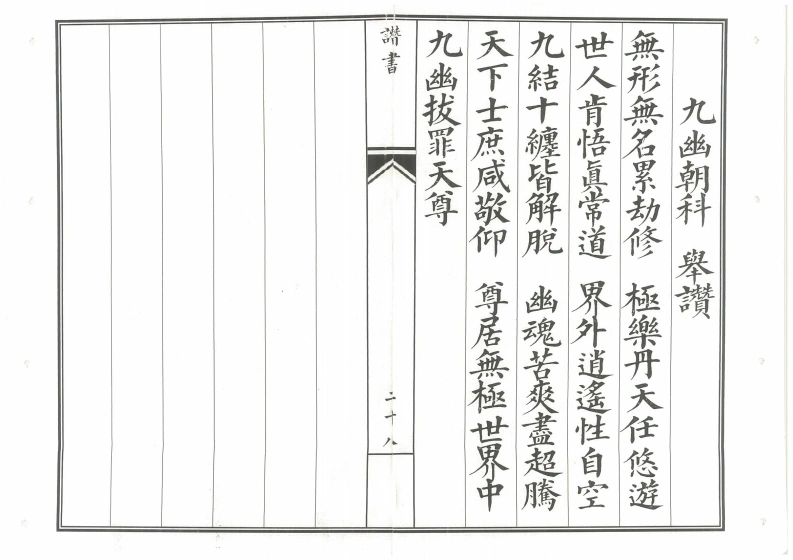 九幽朝科　舉讚
無形無名累劫修　極樂丹天任悠遊
世人肯悟眞常道　界外逍遙性自空
九結十纏皆解脫　幽魂苦爽盡超騰
天下士庶咸敬仰　尊居無極世界中
九幽拔罪天尊
讚書
二十八